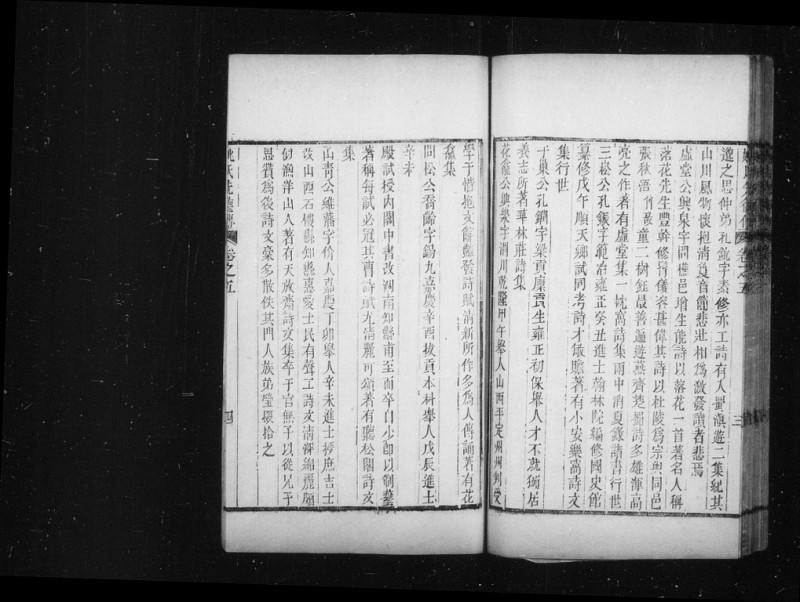 遊之思仲弟孔鋭字素修亦工詩有入蜀滇遊二集紀其
山川風物懷抱清夐音節悲壯相爲激發讀者悲焉
虛堂公興泉字問樵邑增生能詩以落花一首著名人稱
落花先生豐幹修髯儀容甚偉其詩以杜陵爲宗與同邑
張秋浯童二樹鈺最善遍遊燕齊楚蜀詩多雄渾高
亮之作著有虛堂集一枕窩詩集雨中消夏錄諸書行世
三崧公孔鋠字範冶雍正癸丑進士翰林院編修國史館
纂修戊午順天鄉試同考詩才俶贍著有小安樂窩詩文
集行世
于巢公孔鋼字梁貢廩貢生雍正初保舉人才不就獨居
養志所著華林莊詩集
花龕公興㵾字渭川乾隆甲午舉人山西平定州州判受
學于惜抱文館藴發詩賦清新所作多爲人傳誦著有花
龕集
問松公喬齡字錫九嘉慶辛酉拔貢本科舉人戊辰進士
辛未
殿試授內閣中書改河南知縣甫至而卒自少卽以制藝
著稱每試必冠其曹詩賦尤清麗可頌著有聽松閣詩文
集
山青公維藩字价人嘉慶丁卯舉人辛未進士授庶吉士
改山西石樓縣知縣惠愛士民有聲工詩文清深綿麗頗
似漁洋山人著有天放齋詩文集卒于官無子以從兄子
思贊爲後詩文稾多散佚其門人族弟瑩掇拾之
姚氏先德傳
卷之五
四